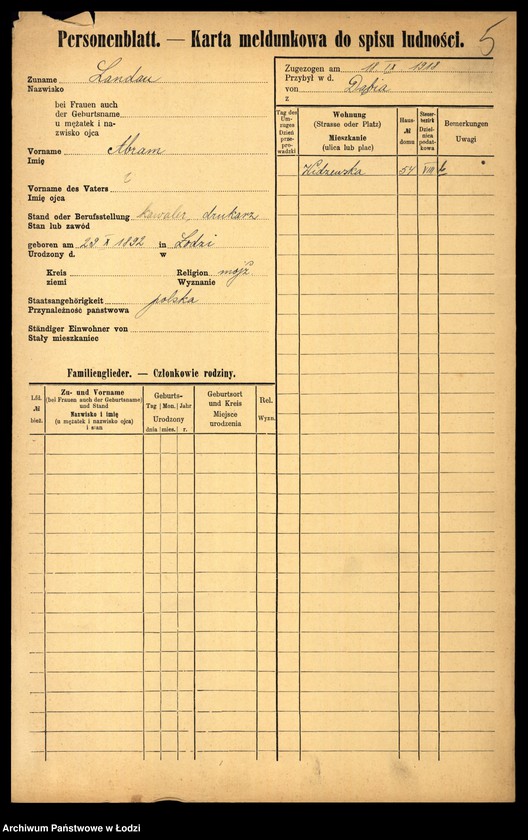 Personenblatt. — Karta meldunkowa do spisu ludności.
5
Zuname Landau
Nazwisko
bei Frauen auch
der Geburtsname
u mężatek i na-
zwisko ojca
Vorname Abram
Imię
Vorname des Vaters
Imię ojca
Stand oder Berufsstellung kawaler, drukarz
Stan lub zawód
geboren am 23 X 1892 in Łodzi
Urodzony d. w
Kreis Religion mojż.
ziemi Wyznanie
Staatsangehörigkeit polska
Przynależność państwowa
Ständiger Einwohner von
Stały mieszkaniec
Zugezogen am 11 IX 1918
Przybył w d.
von Dąbia
z
Tag des Um-zuges
Dzień prze-pro-wadzki
Wohnung
(Strasse oder Platz)
Mieszkanie
(ulica lub plac)
Haus-
№
domu
Steuer-bezirk
Dziel-nica podat-kowa
Bemerkungen
Uwagi
Widzewska 54 VIII
Familienglieder. — Członkowie rodziny.
Lfd.
№
bież.
Zu- und Vorname
(bei Frauen auch der Geburtsname)
und Stand
Nazwisko i imię
(u mężatek i nazwisko ojca)
i stan
Geburts-
Tag | Mon. | Jahr
Urodzony
dnia | mies. | r.
Geburtsort
und Kreis
Miejsce
urodzenia
Rel.
Wyzn.
Archiwum Państwowe w Łodzi